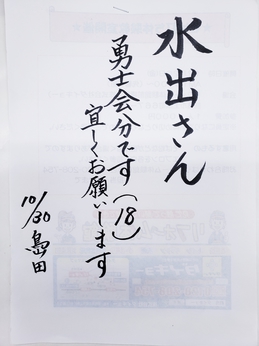 水出さん
勇士会分です(18)
宜しくお願いします
10/30 島田